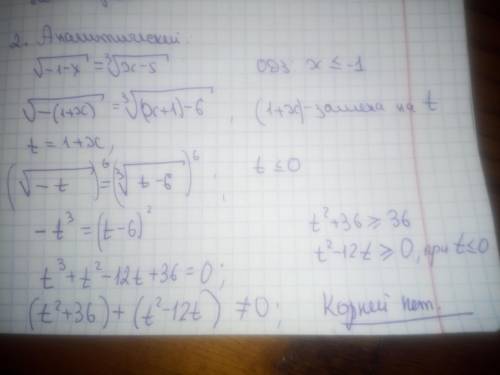 2. Аналитический.
√(-1-x) = ∛(x-5)   одз x ≤ -1
√(-(1+x)) = ∛((x+1)-6) , (1+x)-замена на t
t = 1+x,
(√(-t))⁶ = (∛(t-6))⁶ ;   t ≤ 0
-t³ = (t-6)²   t²+36 ≥ 36
t³+t²-12t+36=0;   t²-12t ≥ 0, при t≤0
(t²+36)+(t²-12t) ≠0;   Корней нет.